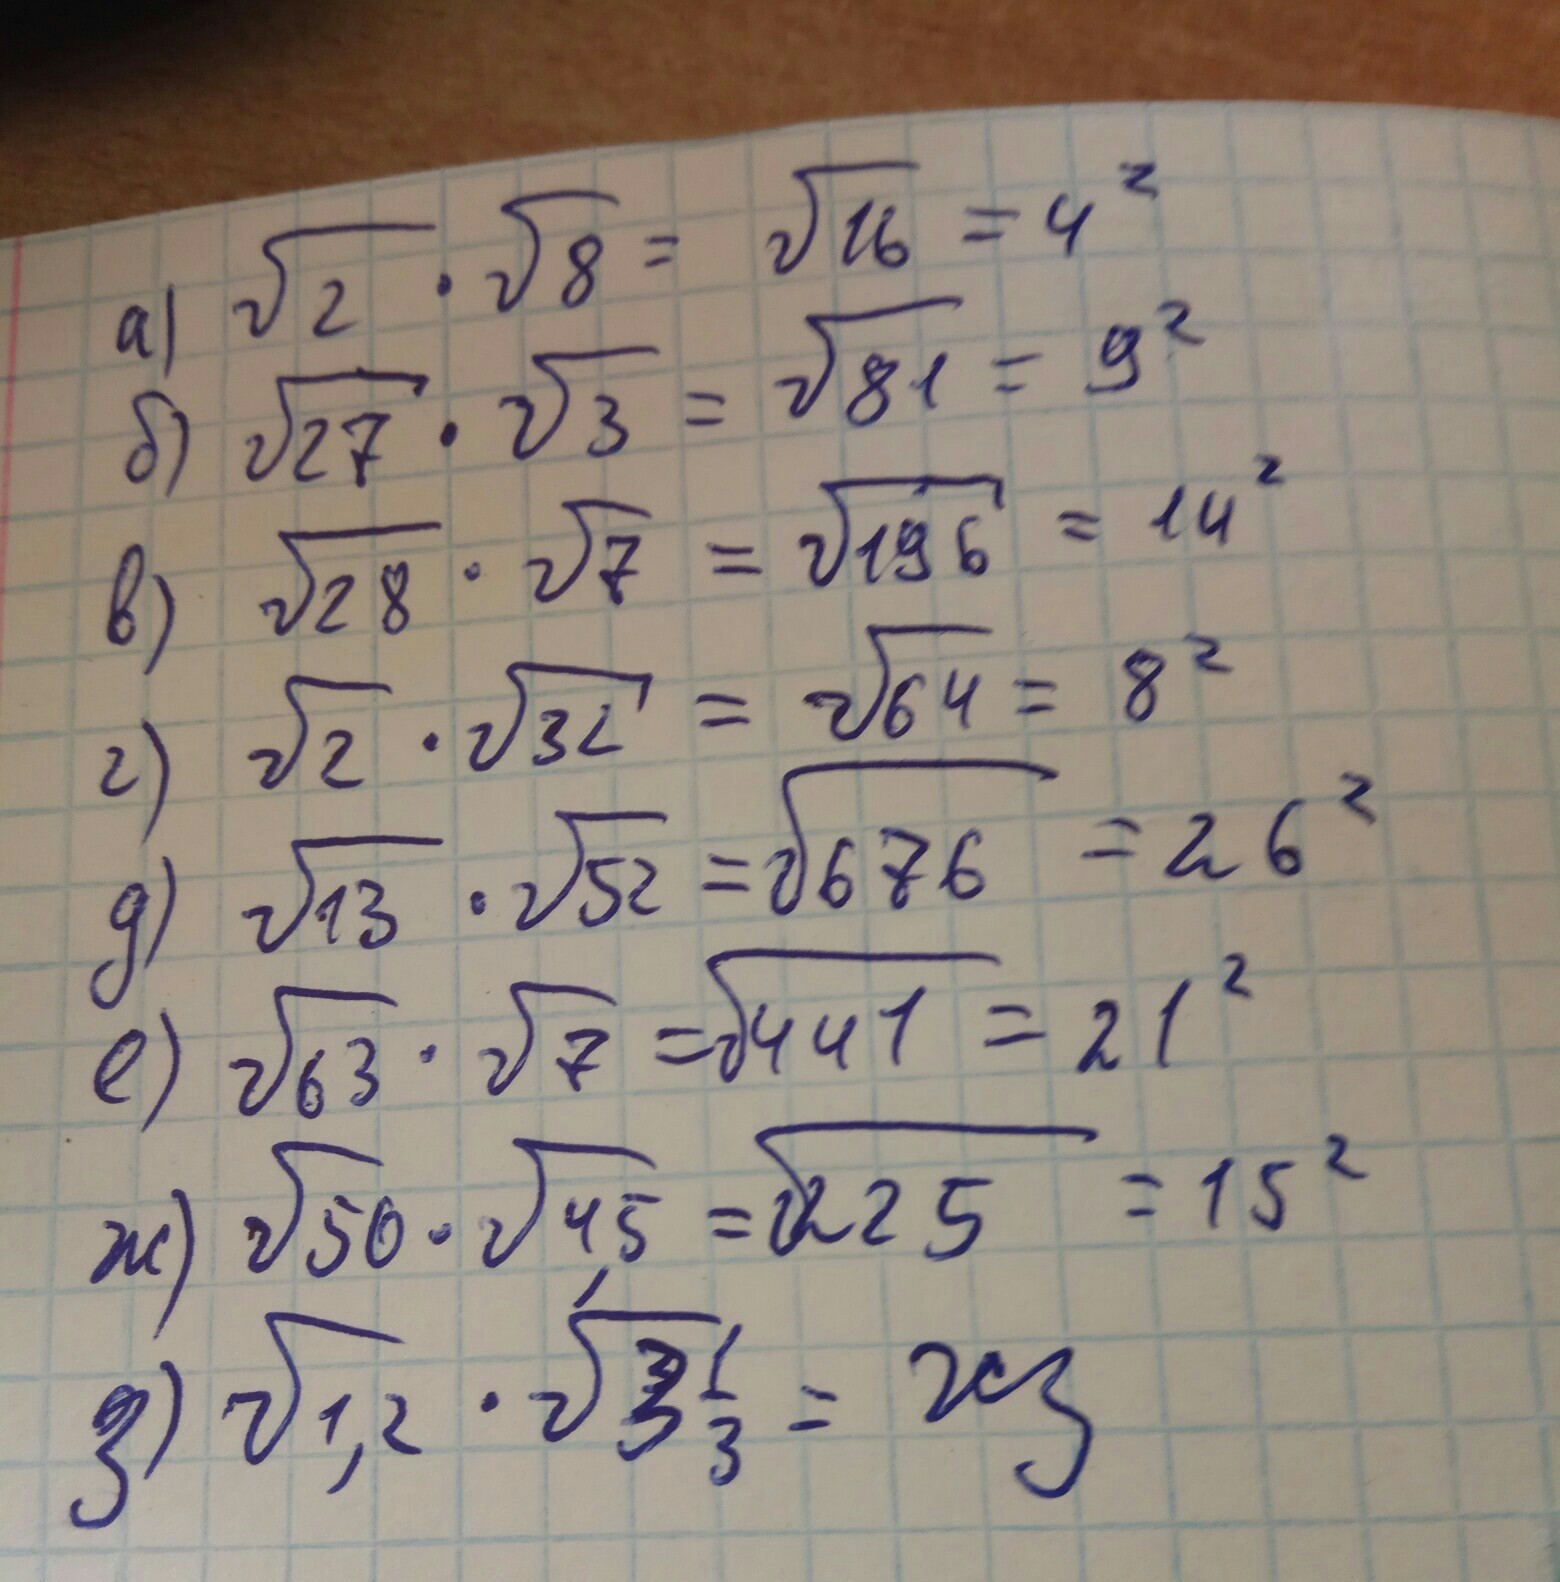 а) √2 · √8 = √16 = 4²
б) √27 · √3 = √81 = 9²
в) √28 · √7 = √196 = 14²
г) √2 · √32 = √64 = 8²
д) √13 · √52 = √676 = 26²
е) √63 · √7 = √441 = 21²
ж) √50 · √4,5 = √225 = 15²
з) √1,2 · √3 1/3 = хз